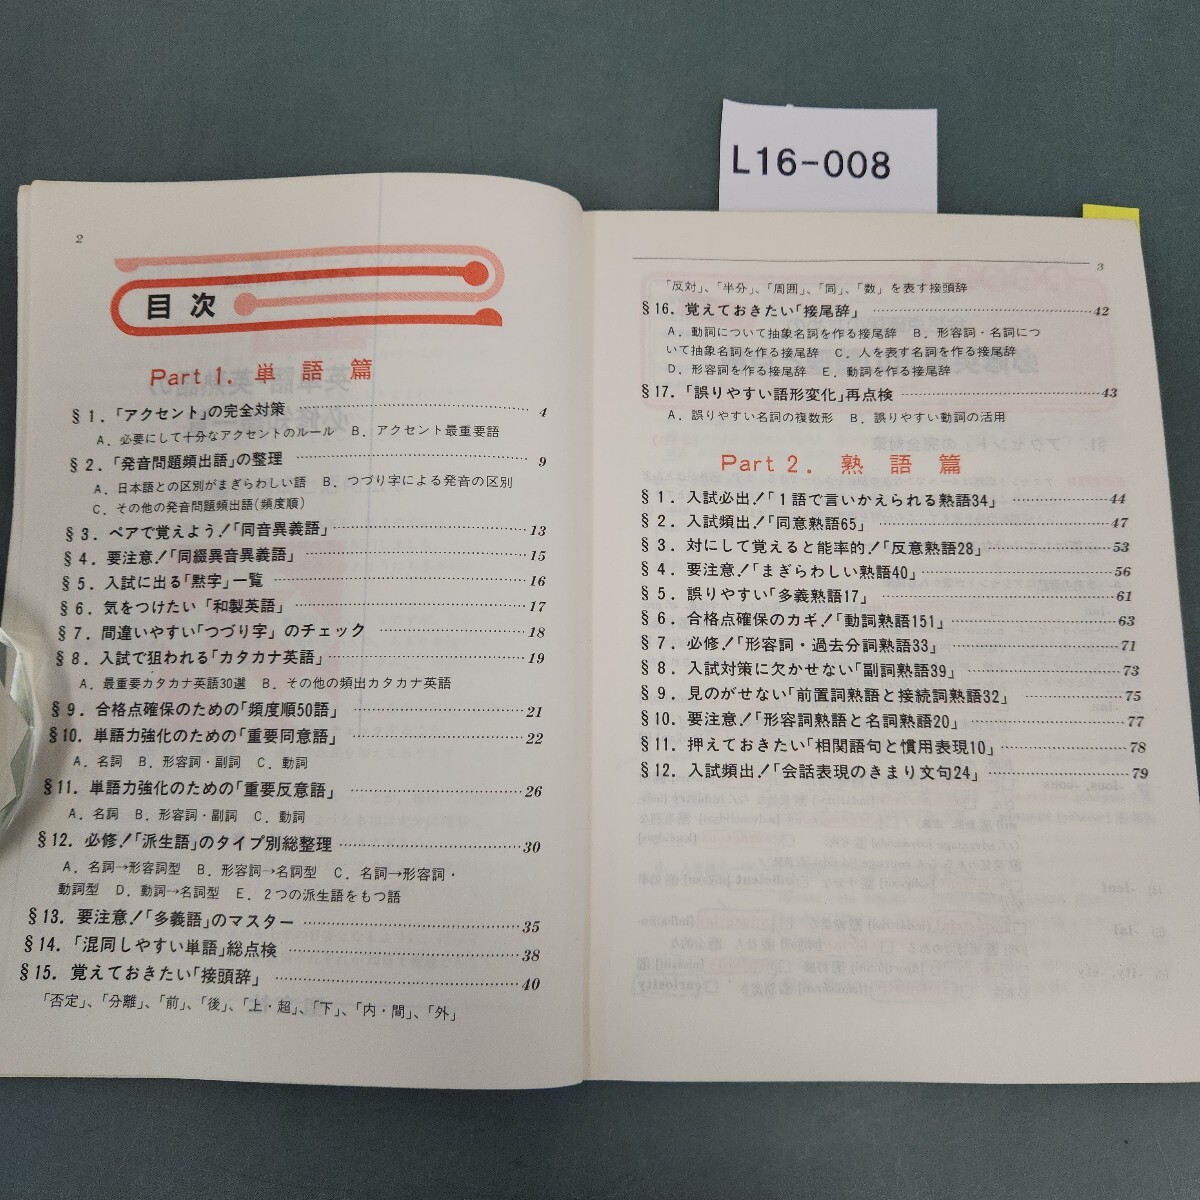 L16-008
2
目次
Part 1. 単語篇
§ 1.「アクセント」の完全対策 4
A. 必要にして十分なアクセントのルール B. アクセント最重要語
§ 2.「発音問題頻出語」の整理 9
A. 日本語との区別がまぎらわしい語 B. つづり字による発音の区別
C. その他の発音問題頻出語(頻度順)
§ 3. ペアで覚えよう!「同音異義語」 13
§ 4. 要注意!「同綴異音異義語」 15
§ 5. 入試に出る「黙字」一覧 16
§ 6. 気をつけたい「和製英語」 17
§ 7. 間違いやすい「つづり字」のチェック 18
§ 8. 入試で狙われる「カタカナ英語」 19
A. 最重要カタカナ英語30選 B. その他の頻出カタカナ英語
§ 9. 合格点確保のための「頻度順50語」 21
§10. 単語力強化のための「重要同意語」 22
A. 名詞 B. 形容詞・副詞 C. 動詞
§11. 単語力強化のための「重要反意語」 26
A. 名詞 B. 形容詞・副詞 C. 動詞
§12. 必修!「派生語」のタイプ別総整理 30
A. 名詞→形容詞型 B. 形容詞→名詞型 C. 名詞→形容詞・
動詞型 D. 動詞→名詞型 E. 2つの派生語をもつ語
§13. 要注意!「多義語」のマスター 35
§14.「混同しやすい単語」総点検 38
§15. 覚えておきたい「接頭辞」 40
「否定」、「分離」、「前」、「後」、「上・超」、「下」、「内・間」、「外」
3
「反対」、「半分」、「周囲」、「同」、「数」を表す接頭辞
§16. 覚えておきたい「接尾辞」 42
A. 動詞について抽象名詞を作る接尾辞 B. 形容詞・名詞につ
いて抽象名詞を作る接尾辞 C. 人を表す名詞を作る接尾辞
D. 形容詞を作る接尾辞 E. 動詞を作る接尾辞
§17.「誤りやすい語形変化」再点検 43
A. 誤りやすい名詞の複数形 B. 誤りやすい動詞の活用
Part 2. 熟語篇
§ 1. 入試必出!「1語で言いかえられる熟語34」 44
§ 2. 入試頻出!「同意熟語65」 47
§ 3. 対にして覚えると能率的!「反意熟語28」 53
§ 4. 要注意!「まぎらわしい熟語40」 56
§ 5. 誤りやすい「多義熟語17」 61
§ 6. 合格点確保のカギ!「動詞熟語151」 63
§ 7. 必修!「形容詞・過去分詞熟語33」 71
§ 8. 入試対策に欠かせない「副詞熟語39」 73
§ 9. 見のがせない「前置詞熟語と接続詞熟語32」 75
§10. 要注意!「形容詞熟語と名詞熟語20」 77
§11. 押えておきたい「相関語句と慣用表現10」 78
§12. 入試頻出!「会話表現のきまり文句24」 79